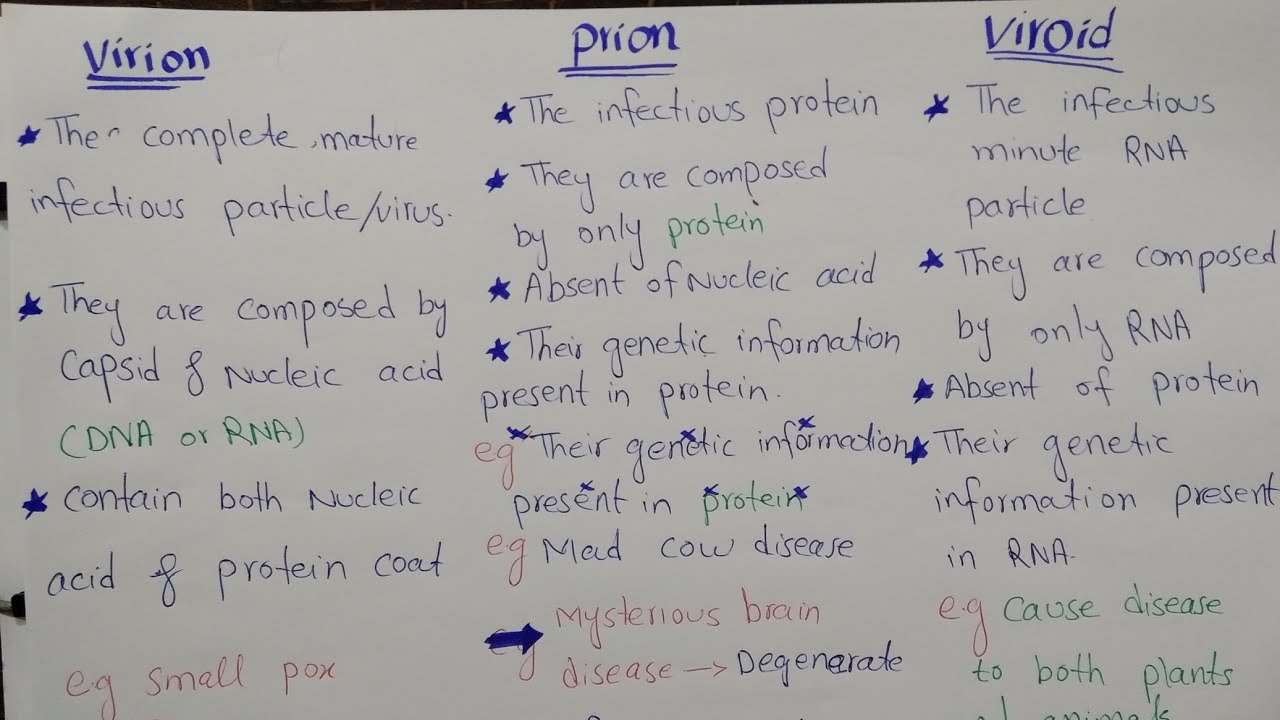 Virion
★ The complete, mature
infectious particle/virus.
★ They are composed by
Capsid & Nucleic acid
(DNA or RNA)
★ contain both Nucleic
acid & protein coat
eg small pox
Prion
★ The infectious protein
★ They are composed
by only protein
★ Absent of Nucleic acid
★ Their genetic information
present in protein.
eg Their genetic information
present in protein
eg Mad cow disease
eg Mysterious brain
disease → Degenerate
Viroid
★ The infectious
minute RNA
particle
★ They are composed
by only RNA
★ Absent of protein
★ Their genetic
information present
in RNA.
e.g Cause disease
to both plants
animals